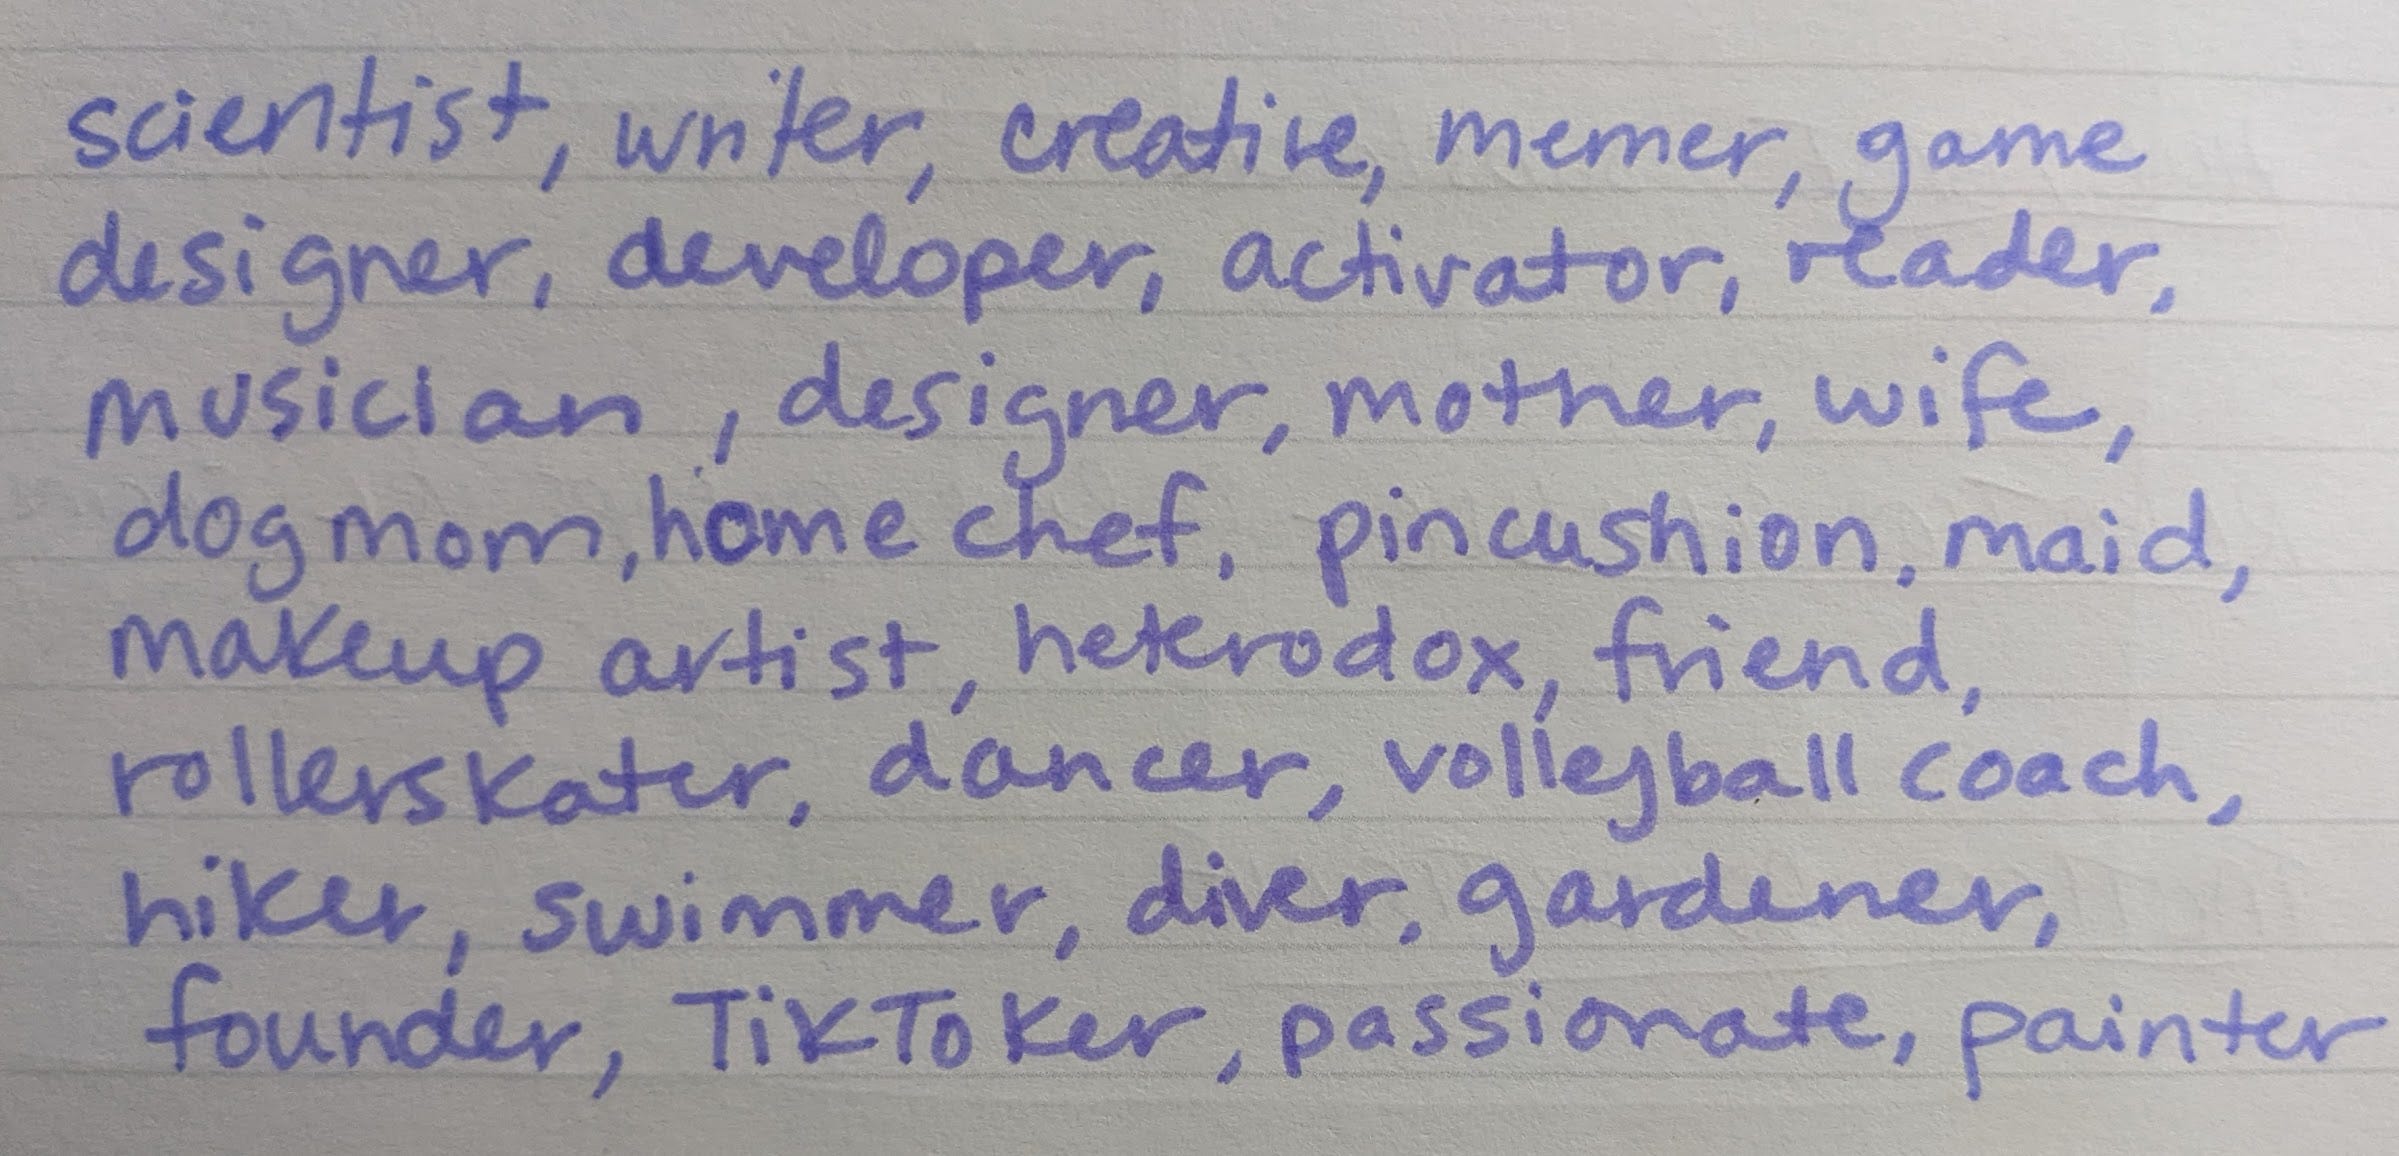 scientist, writer, creative, memer, game
designer, developer, activator, reader,
musician, designer, mother, wife,
dog mom, home chef, pincushion, maid,
makeup artist, heterodox, friend,
rollerskater, dancer, volleyball coach,
hiker, swimmer, diver, gardener,
founder, TikToker, passionate, painter